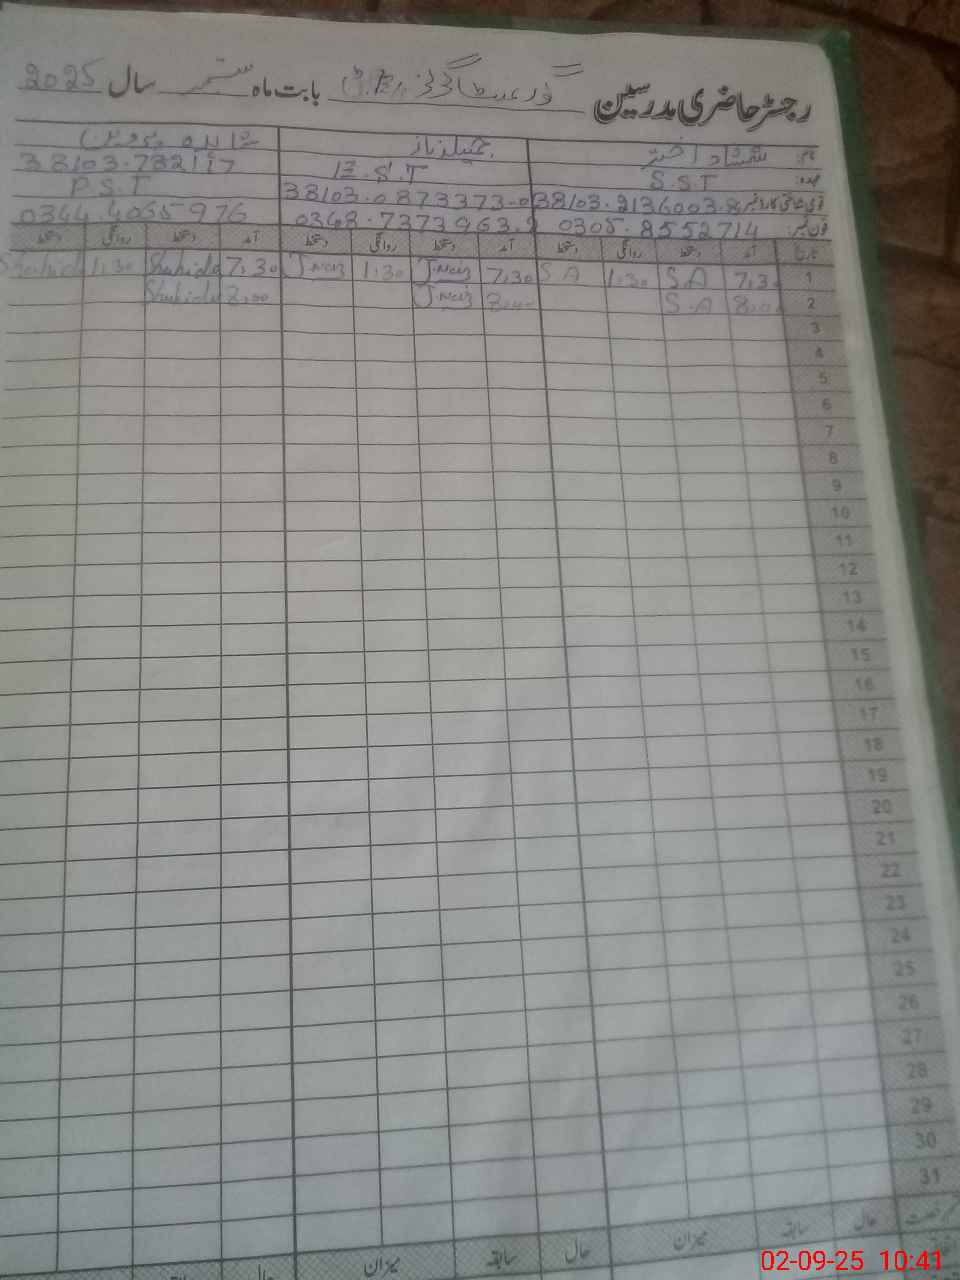 رجسٹر حاضری مدرسین گورنمنٹ گرلز بابت ماہ ستمبر سال 2025
نام: شمشاد اختر جمیلہ ناز شاہدہ پروین
عہدہ: S.S.T E.S.T P.S.T
قومی شناختی کارڈ نمبر 38103.2136003.8 38103.0873373.0
فون نمبر: 0305.8552714 0348.7373963 0344.4055976
تاریخ آمد دستخط روانگی دستخط آمد دستخط روانگی دستخط آمد دستخط روانگی دستخط
1 7.3 S A 1.30 S A 7.30 J.naz 1.30 J.naz 7.30 Shahida 1.30 Shahid
2 8.0 S.A 8.00 J.naz 8.00 Shahida
3
4
5
6
7
8
9
10
11
12
13
14
15
16
17
18
19
20
21
22
23
24
25
26
27
28
29
30
31
حال سابقہ میزان حال سابقہ میزان حال
02-09-25 10:41